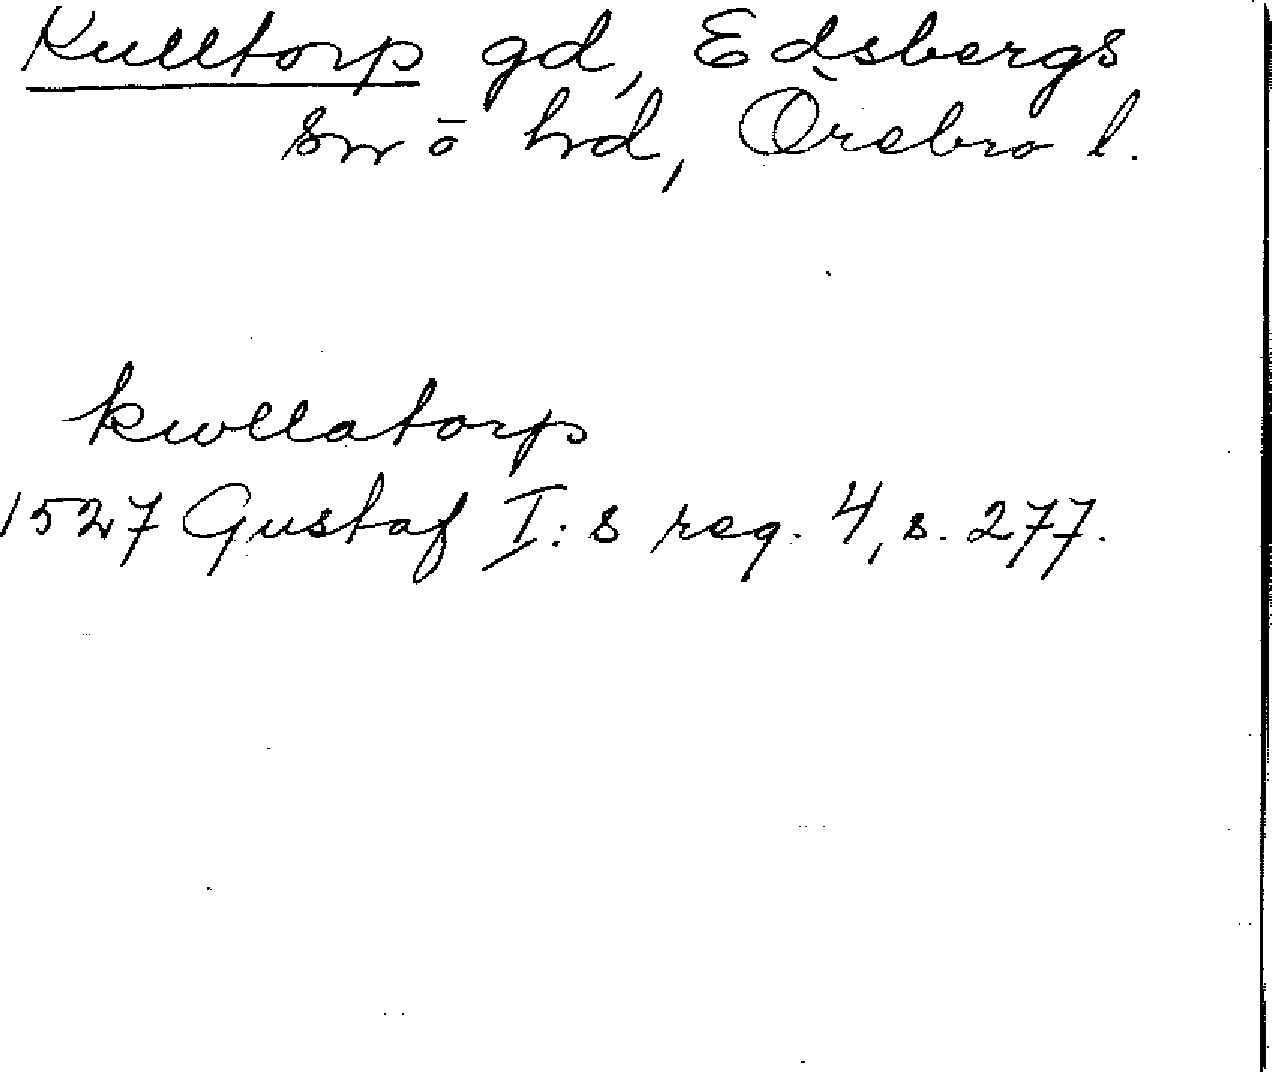 Kulltorp gd, Edsbergs
sn ō hd, Örebro l.
kwllatorp
1527 Gustaf I:s reg. 4, s. 277.